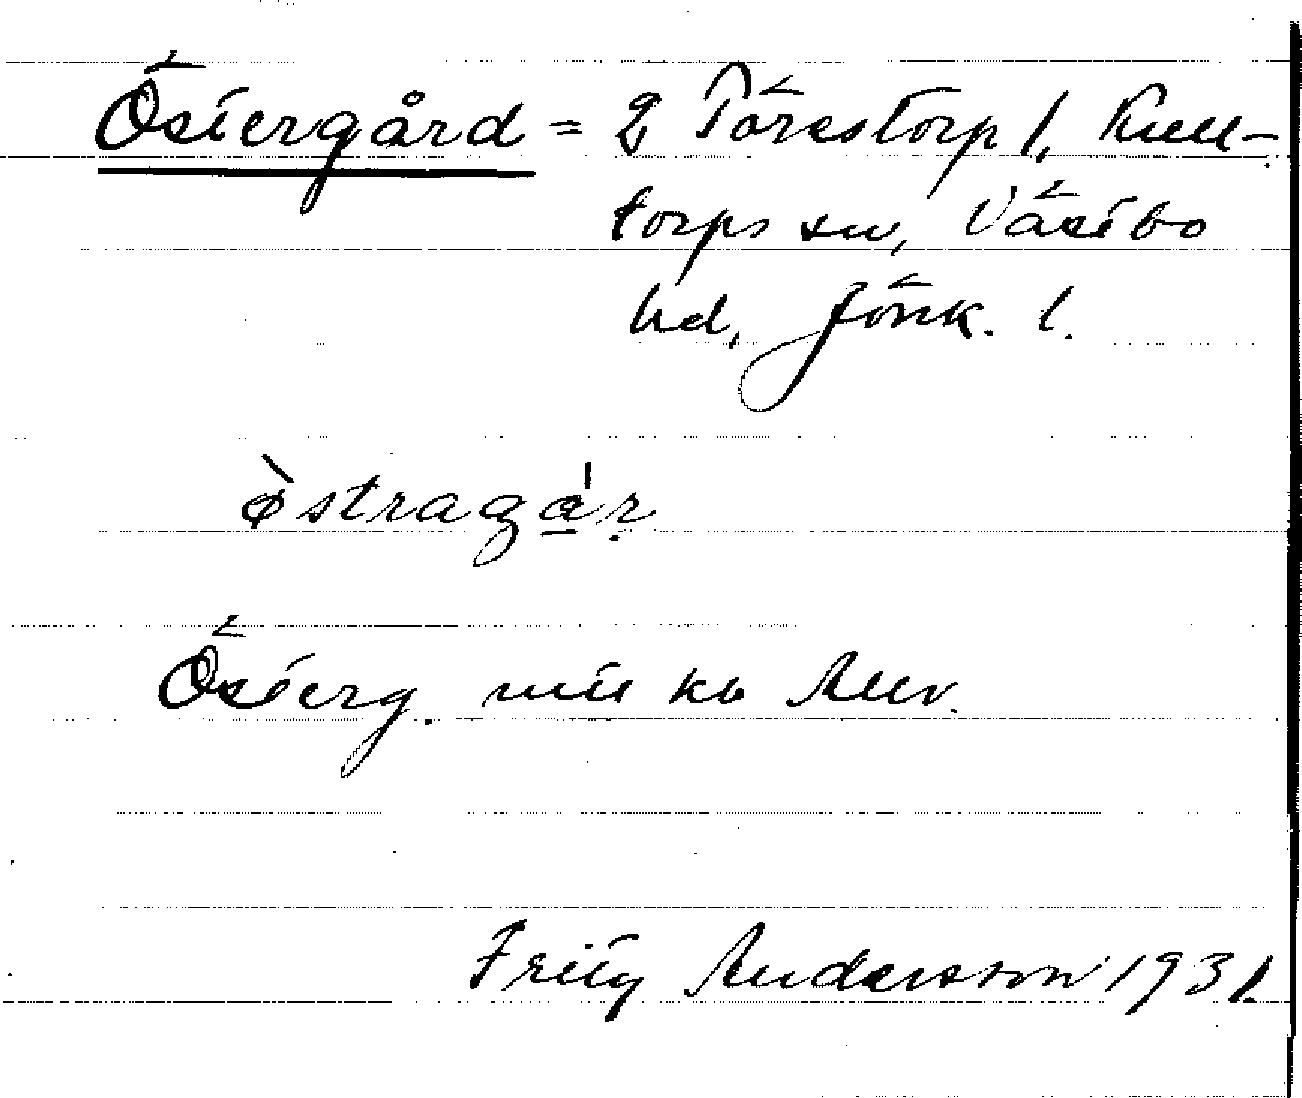 Östergård = 2 Törestorp 1, Kull-
torps sn, Västbo
hd, Jönk. l.
ø̀straga̠'ṛ
Österg. mtl kb Allm.
Fritz Andersson 1931.